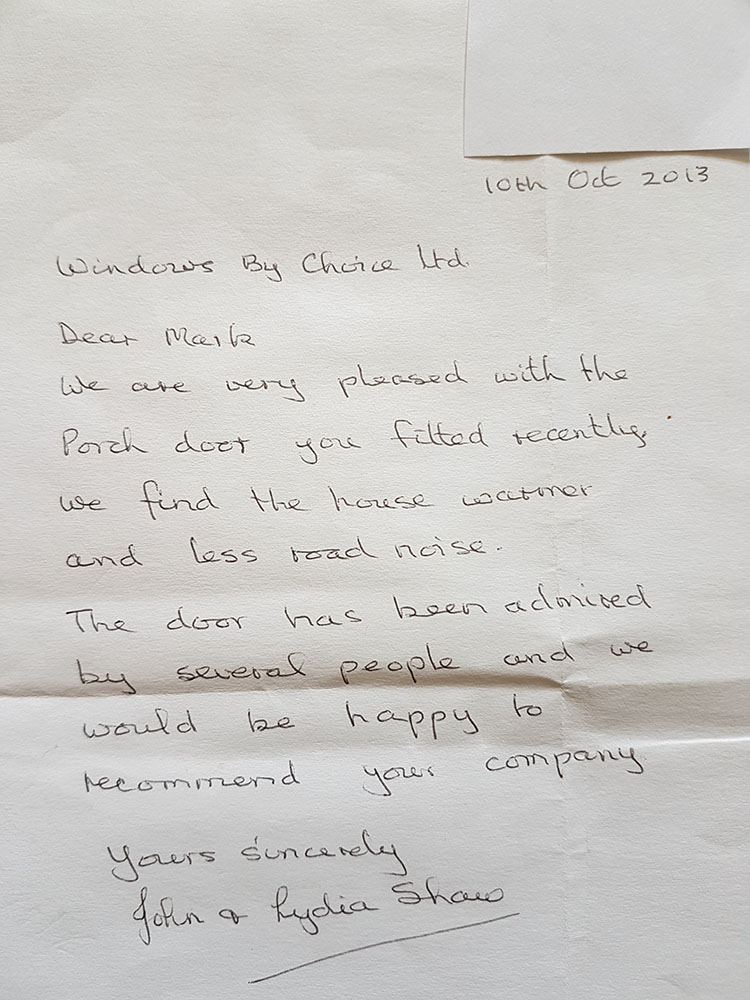 10th Oct 2013
Windows By Choice Ltd.
Dear Mark
We are very pleased with the
Porch door you fitted recently,
we find the house warmer
and less road noise.
The door has been admired
by several people and we
would be happy to
recommend your company
Yours sincerely
John & Lydia Shaw